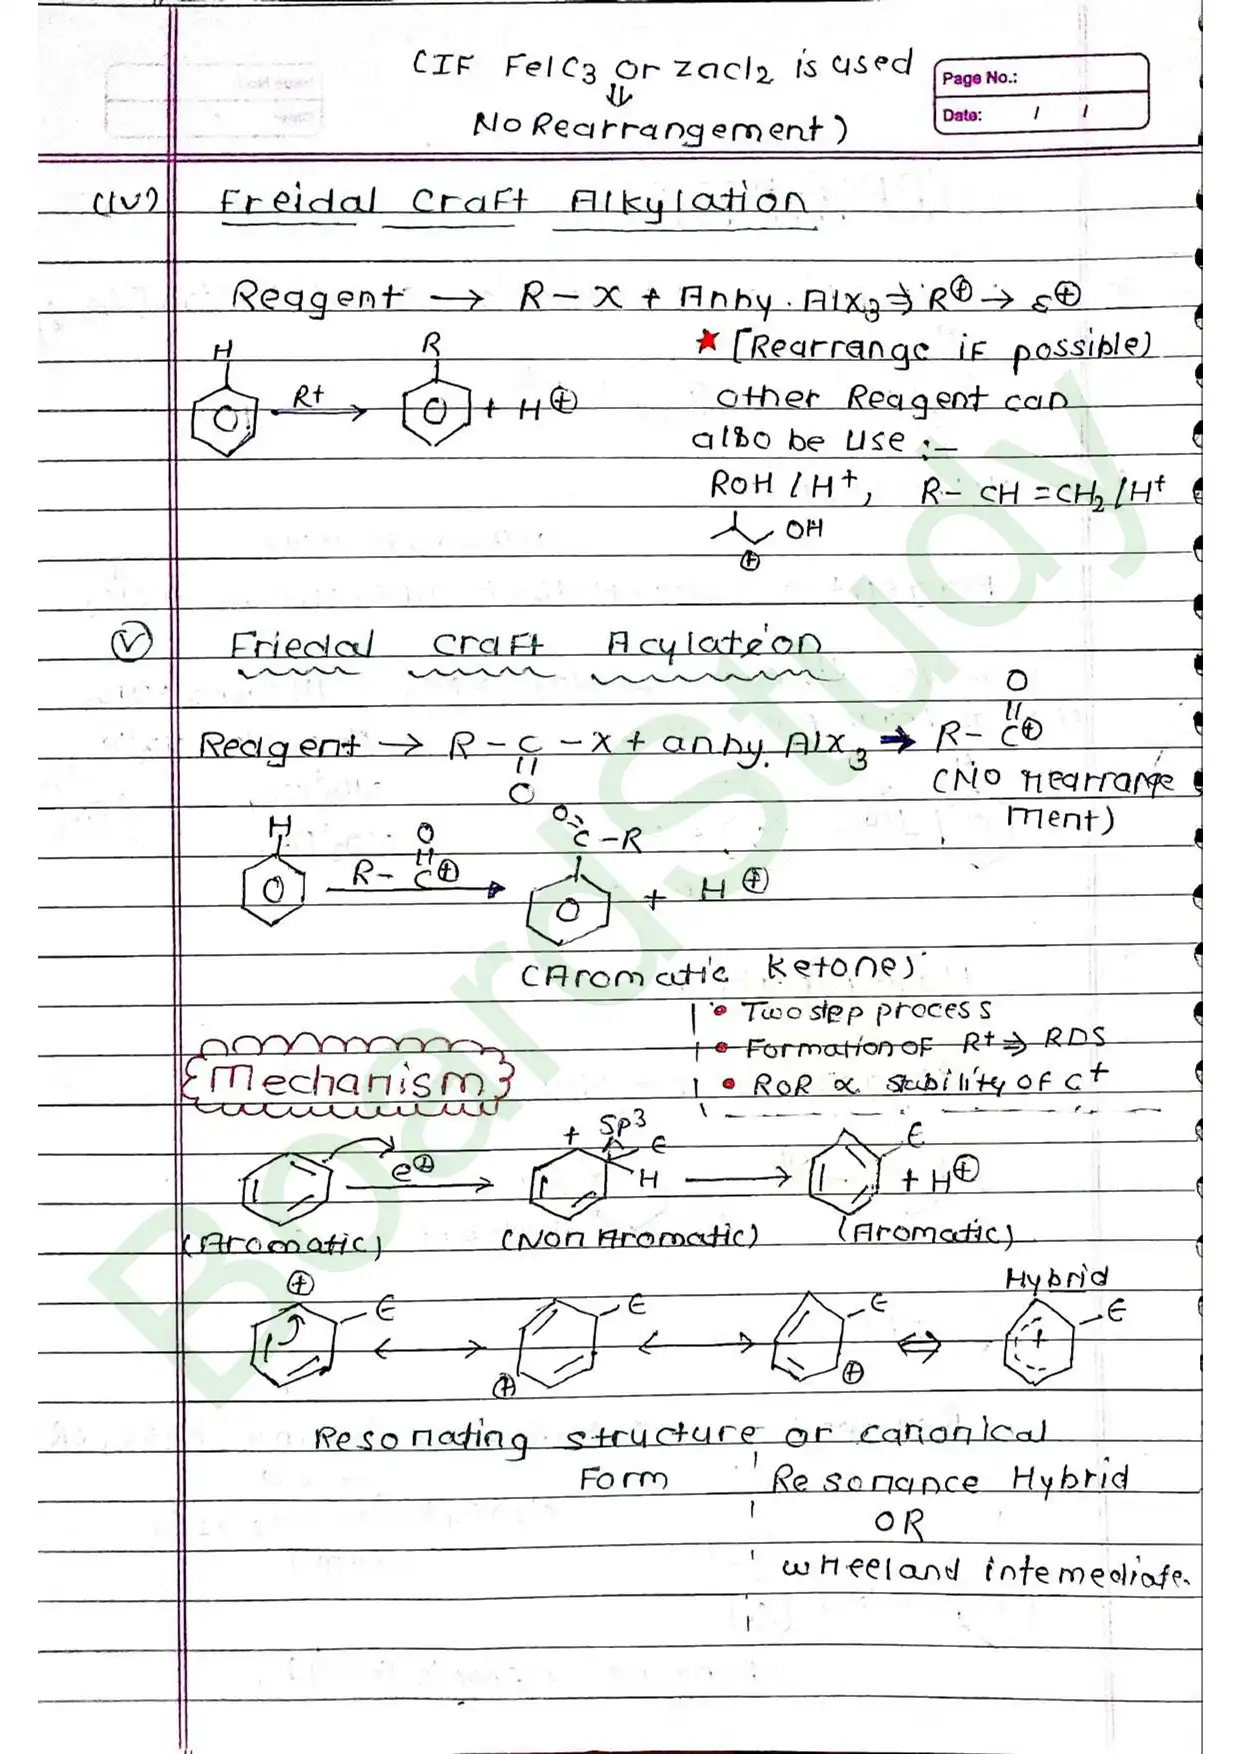 (IF FelC3 or zacl2 is used
⇓
No Rearrangement)
Page No.:
Date: / /
(IV) Freidal Craft Alkylation
Reagent → R - X + Anhy. AlX3 ⇒ R⊕ → ε⊕
★ [Rearrange if possible)
H R
R+
+ H⊕
other Reagent can
also be use :-
ROH / H+, R- CH = CH2 / H+
OH
⊕
(V) Friedal Craft Acylation
O
||
Reagent → R - C - X + anhy. AlX3 → R- C⊕
||
O
(No rearrange
ment)
H O O=C-R
R- C⊕
+ H⊕
(Aromatic Ketone)
• Two step process
• Formation of R+ ⇒ RDS
• ROR ∝ stability of C+
Mechanism
e⊕ + Sp3 E H E + H⊕
(Aromatic) (Non Aromatic) (Aromatic)
Hybrid
⊕ E ↔ E ⊕ ↔ E ⊕ ⇔ + E
Resonating structure or canonical
Form
Resonance Hybrid
OR
wheeland intemediate.
BoardStudy